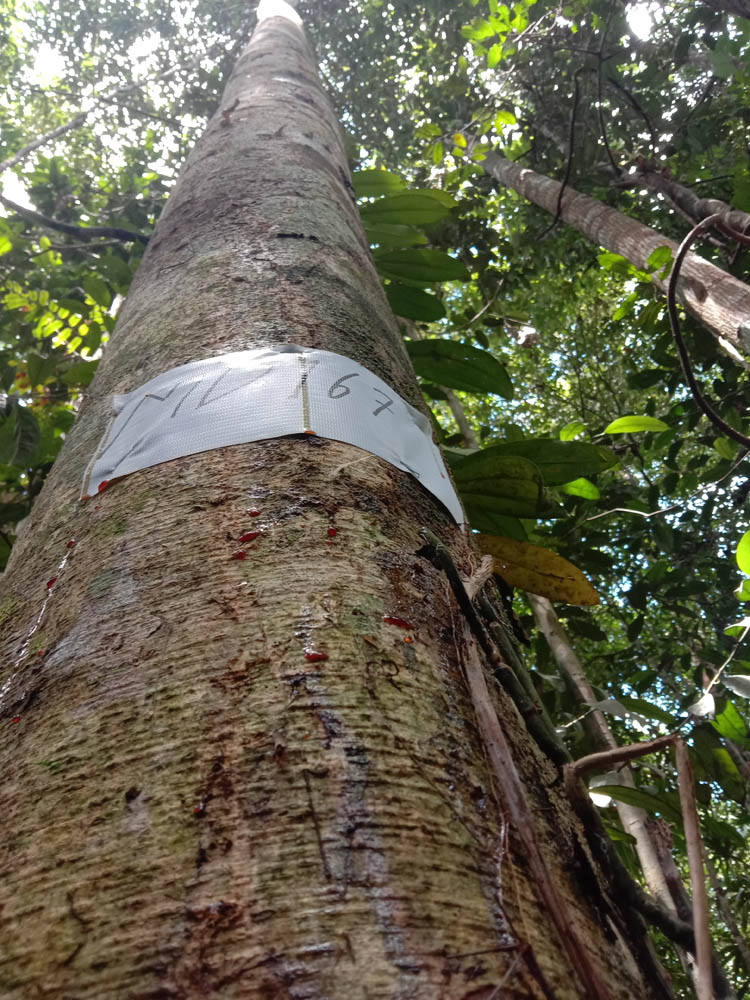 MV 167